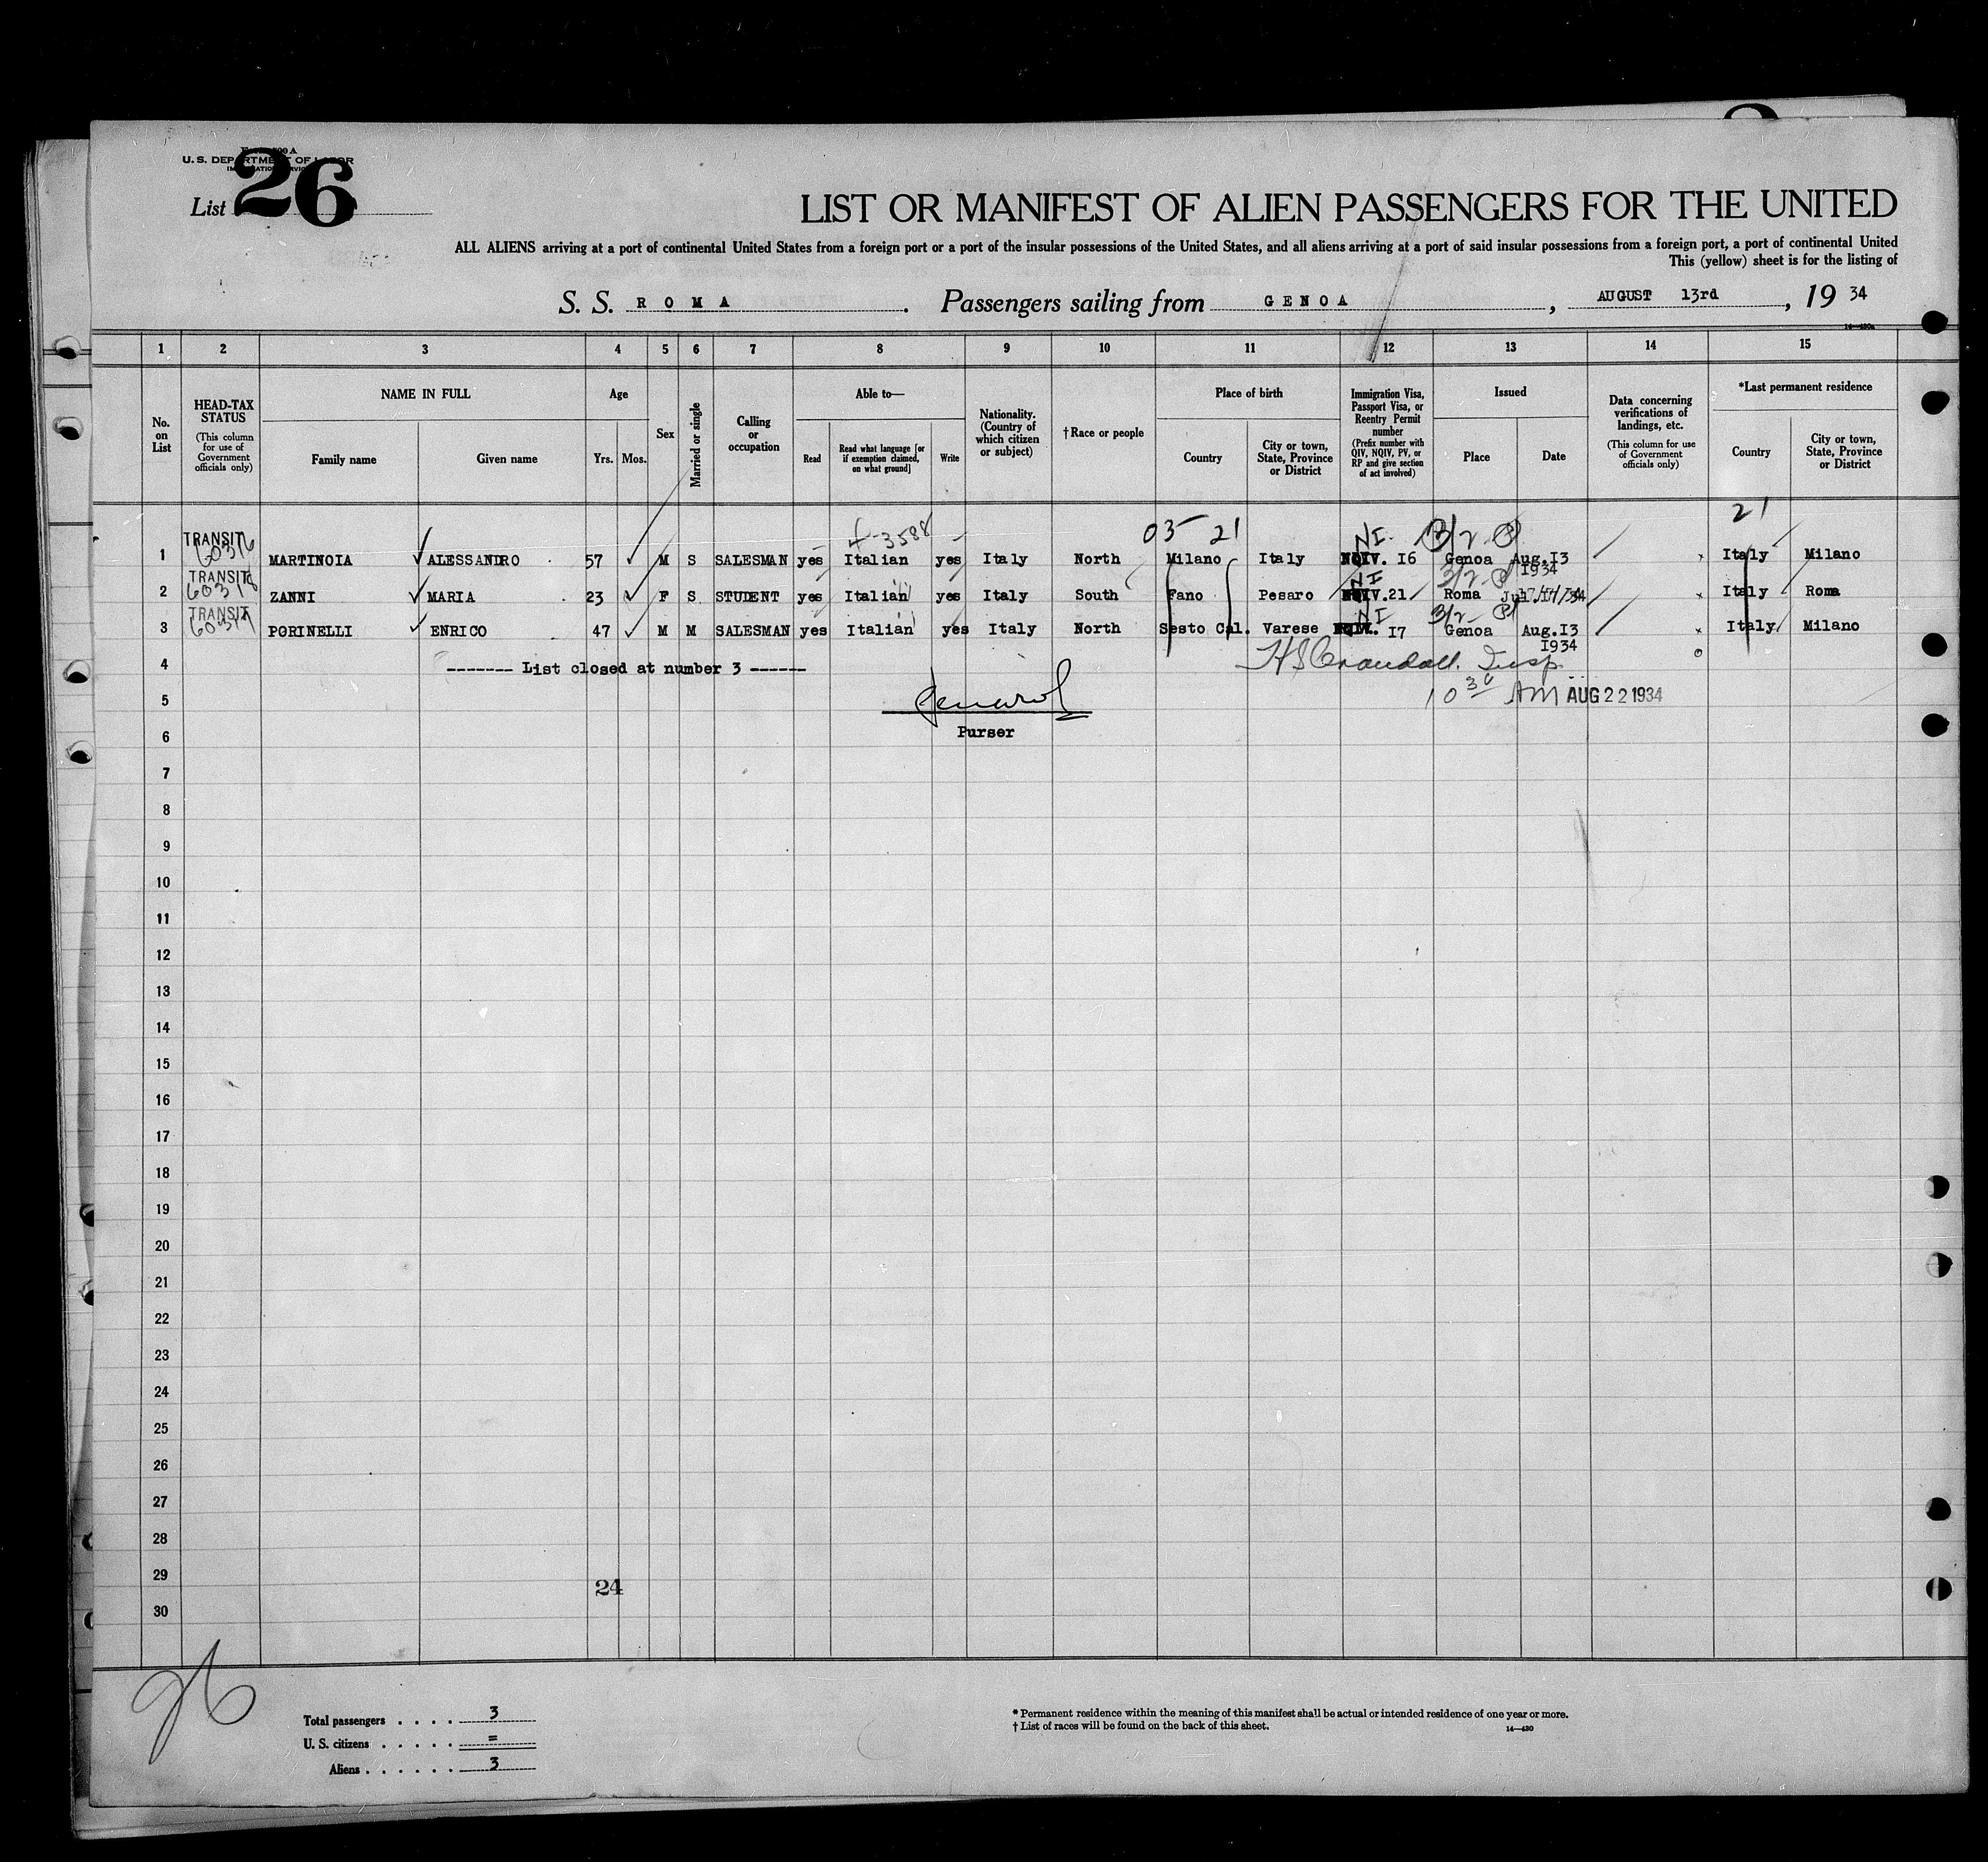 U. S. DEPARTMENT OF LABOR
List 26
LIST OR MANIFEST OF ALIEN PASSENGERS FOR THE UNITED
ALL ALIENS arriving at a port of continental United States from a foreign port or a port of the insular possessions of the United States, and all aliens arriving at a port of said insular possessions from a foreign port, a port of continental United
This (yellow) sheet is for the listing of
S. S. ROMA. Passengers sailing from GENOA, AUGUST 13rd, 19 34
1 2 3 4 5 6 7 8 9 10 11 12 13 14 15
No. on List
HEAD-TAX STATUS (This column for use of Government officials only)
NAME IN FULL
Family name
Given name
Age
Yrs.
Mos.
Sex
Married or single
Calling or occupation
Able to—
Read
Read what language [or if exemption claimed, on what ground]
Write
Nationality. (Country of which citizen or subject)
†Race or people
Place of birth
Country
City or town, State, Province or District
Immigration Visa, Passport Visa, or Reentry Permit number (Prefix number with QIV, NQIV, PV, or RP and give section of act involved)
Issued
Place
Date
Data concerning verifications of landings, etc. (This column for use of Government officials only)
*Last permanent residence
Country
City or town, State, Province or District
03 21
21
3588
1 TRANSIT 60316 MARTINOIA ALESSANDRO 57 M S SALESMAN yes Italian yes Italy North Milano Italy NI 16 3/2 Genoa Aug.I3 1934 Italy Milano
2 TRANSIT 60318 ZANNI MARIA 23 F S STUDENT yes Italian yes Italy South Fano Pesaro NI 21 3/2 Roma Italy Roma
3 TRANSIT 60317 PORINELLI ENRICO 47 M M SALESMAN yes Italian yes Italy North Sesto Cal. Varese NI I7 3/2 Genoa Aug.I3 I934 Italy Milano
4 ------- List closed at number 3 ------
H S Crandall. Insp.
5
10 30 AM AUG 22 1934
6
Purser
7
8
9
10
11
12
13
14
15
16
17
18
19
20
21
22
23
24
25
26
27
28
29
24
30
26
Total passengers . . . . 3
U. S. citizens . . . . . =
Aliens . . . . . . 3
* Permanent residence within the meaning of this manifest shall be actual or intended residence of one year or more.
† List of races will be found on the back of this sheet.
14—430